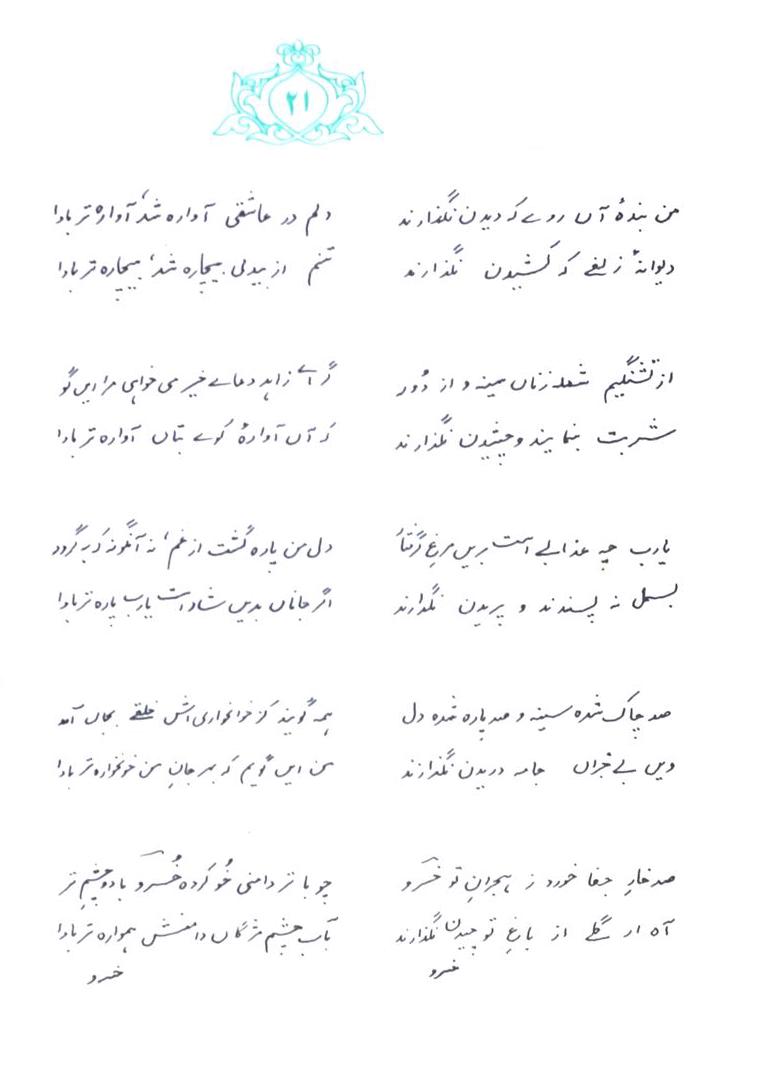 ۲۱
من بندۂ آں روے کہ دیدن نگذارند
دیوانۂ زلفے کہ کشیدن نگذارند
از تشنگیم شعلہ زناں سینہ و از دُور
شربت بنمایند و چشیدن نگذارند
یارب چہ عذابے است بریں مرغِ گرفتار
بسمل نہ پسندند و پریدن نگذارند
صد چاک شدہ سینہ و صد پارہ شدہ دل
ویں بے خبراں جامہ دریدن نگذارند
صد خارِ جفا خورد ز ہجرانِ تو خسرو
آہ ار گلے از باغِ تو چیدن نگذارند
خسرو
دلم در عاشقی آوارہ شد، آوارہ تر بادا
تنم از بیدلی بیچارہ شد، بیچارہ تر بادا
گر اے زاہد دعاے خیر می خواہی مرا ایں گو
کہ آں آوارۂ کوے بتاں آوارہ تر بادا
دل من پارہ گشت از غم، نہ آنگونہ کہ بہ گردد
اگر جاناں بدیں شاد است یارب پارہ تر بادا
ہمہ گویند کز خونخواری اش خلقے بجاں آمد
من ایں گویم کہ بہر جانِ من خونخوارہ تر بادا
چو با تر دامنی خُو کردہ خُسرو با دو چشمِ تر
بآب چشم مژگاں دامنش ہموارہ تر بادا
خسرو